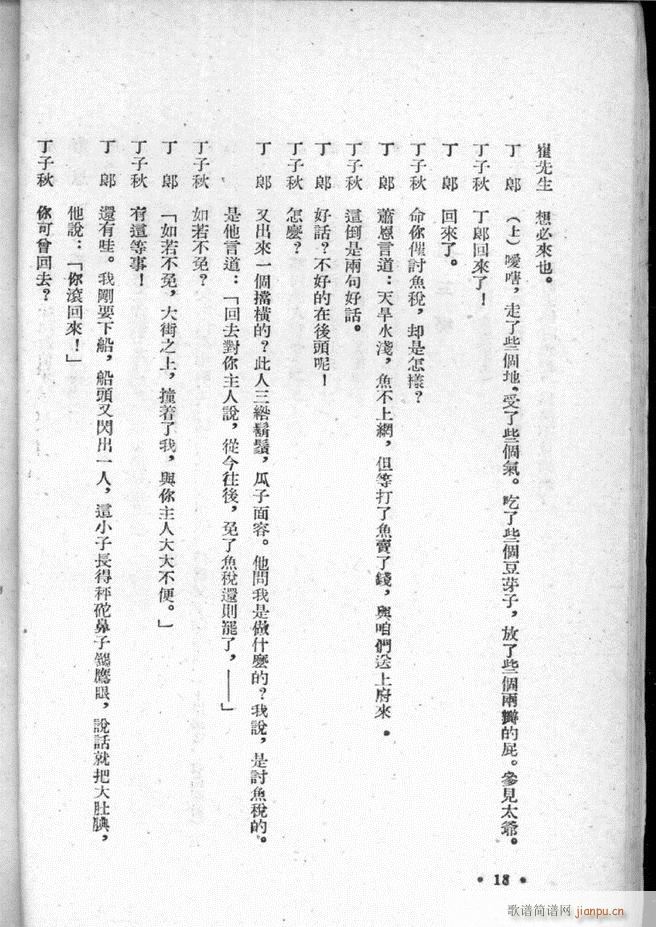 崔先生　想必來也。
丁　郎　（上）噯嗐，走了些個地，受了些個氣。吃了些個豆芽子，放了些個兩瓣的屁。參見太爺。
丁子秋　丁郎回來了！
丁　郎　回來了。
丁子秋　命你催討魚稅，却是怎樣？
丁　郎　蕭恩言道：天旱水淺，魚不上網，但等打了魚賣了錢，與咱們送上府來．
丁子秋　這倒是兩句好話。
丁　郎　好話？不好的在後頭呢！
丁子秋　怎麼？
丁　郎　又出來一個擋橫的？此人三綹鬍鬚，瓜子面容。他問我是做什麼的？我說，是討魚稅的。
是他言道：「回去對你主人說，從今往後，免了魚稅還則罷了，——」
丁子秋　如若不免？
丁　郎　「如若不免，大街之上，撞着了我，與你主人大大不便。」
丁子秋　有這等事！
丁　郎　還有哇。我剛要下船，船頭又閃出一人，這小子長得秤砣鼻子鷂鷹眼，說話就把大肚腆，
他說：「你滾回來！」
丁子秋　你可曾回去？
• 18 •
歌谱简谱网 jianpu.cn